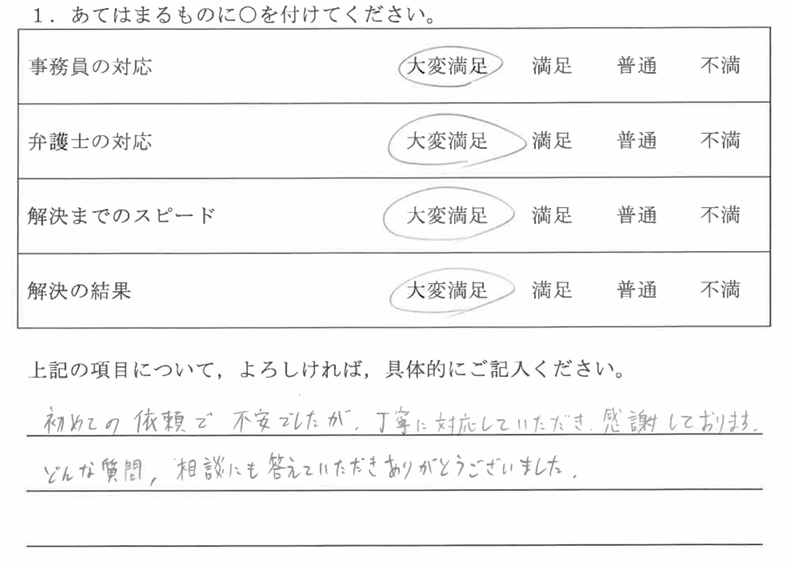 １．あてはまるものに○を付けてください。
事務員の対応 大変満足 満足 普通 不満
弁護士の対応 大変満足 満足 普通 不満
解決までのスピード 大変満足 満足 普通 不満
解決の結果 大変満足 満足 普通 不満
上記の項目について，よろしければ，具体的にご記入ください。
初めての依頼で不安でしたが、丁寧に対応していただき、感謝しております。
どんな質問，相談にも答えていただきありがとうございました。